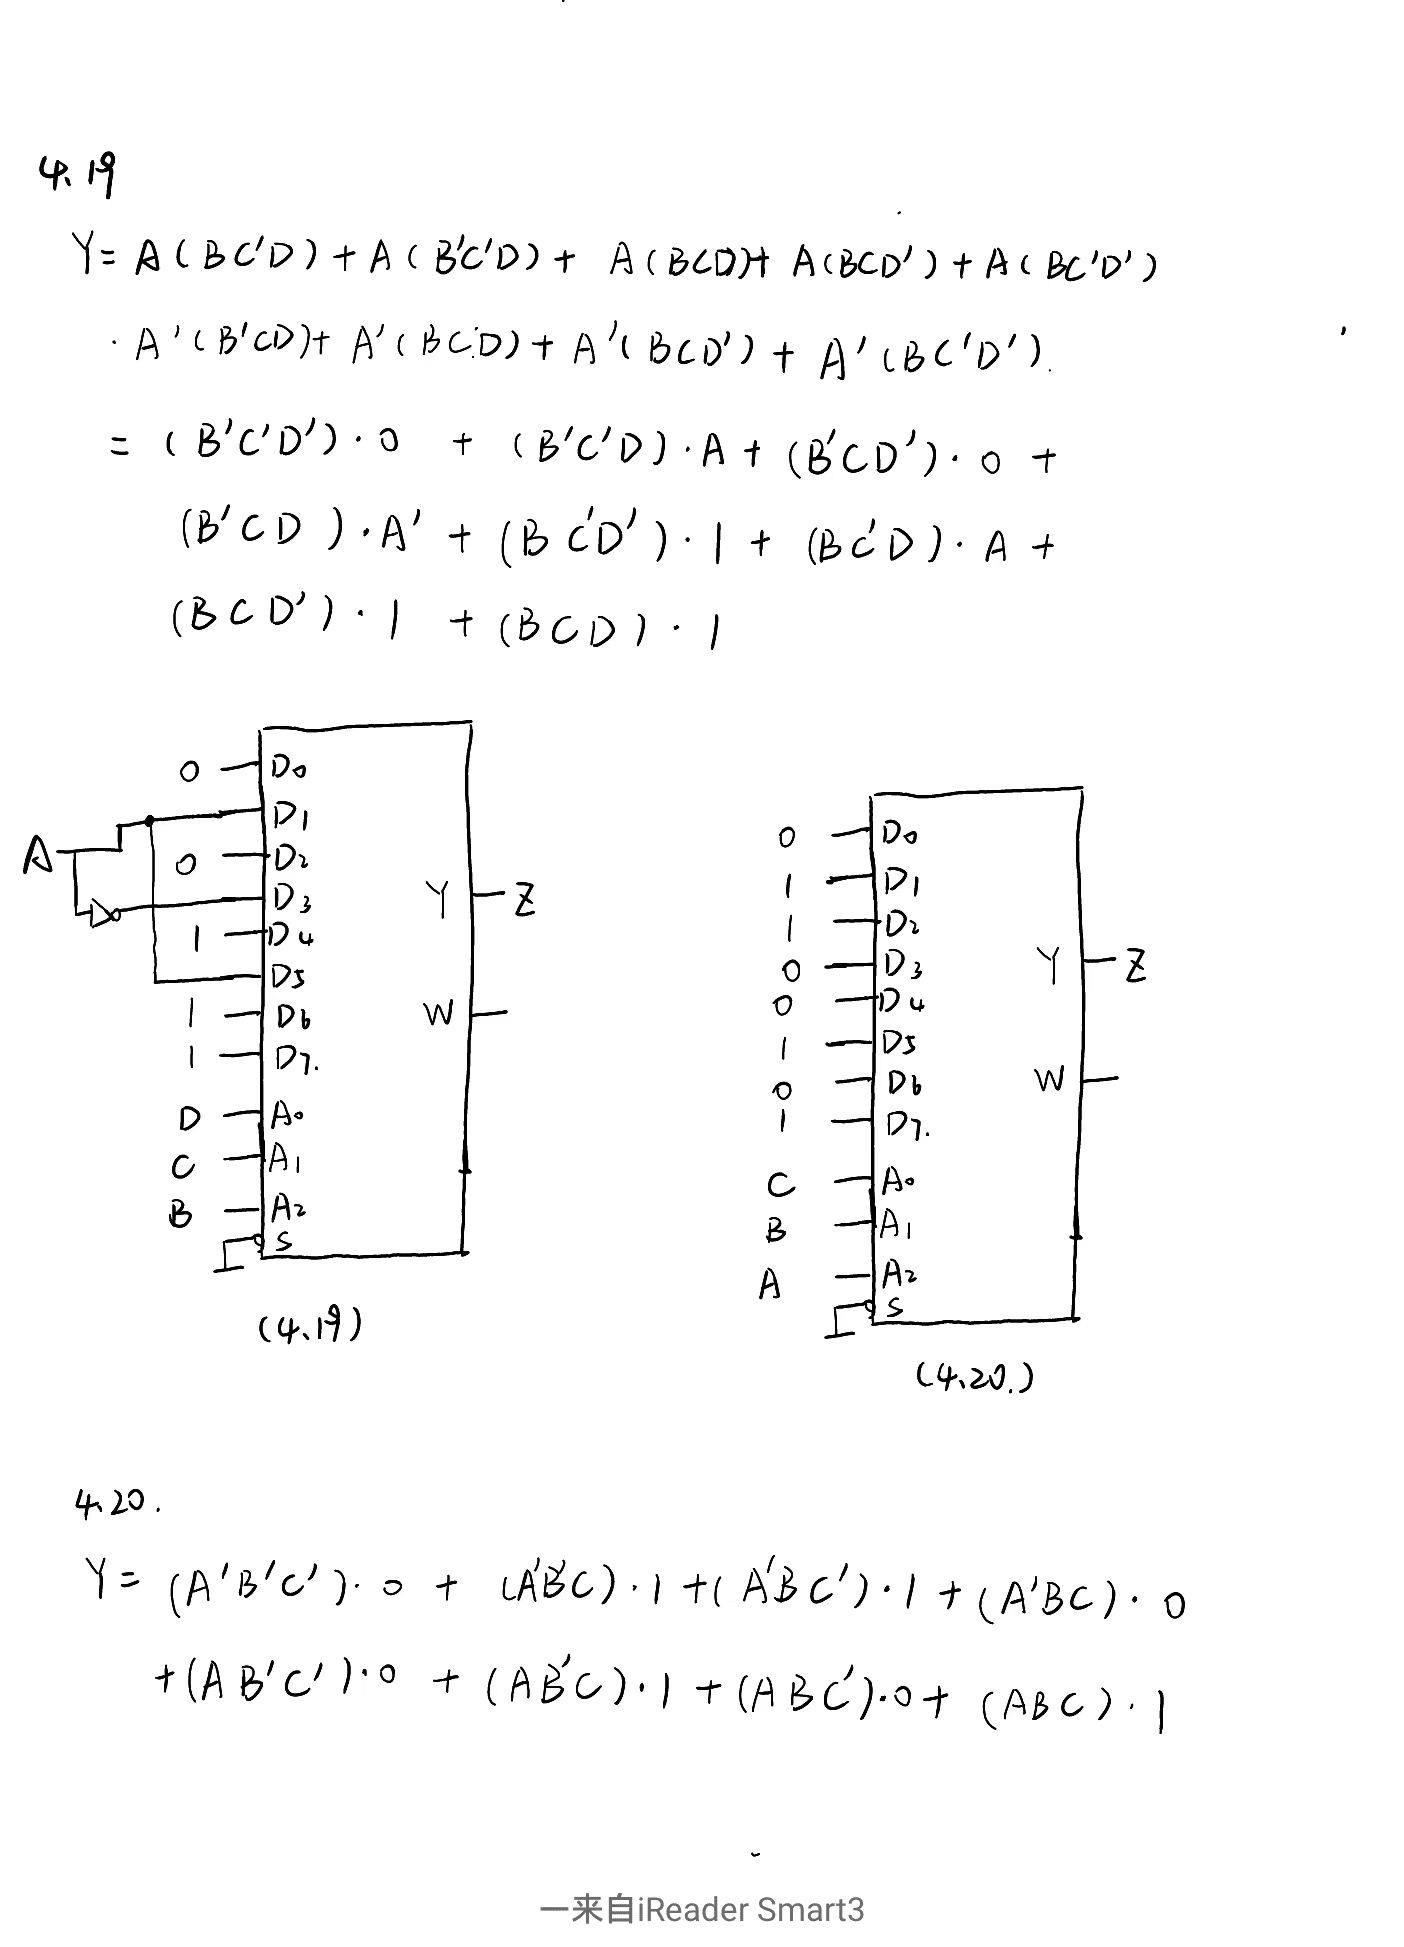 4.19
Y= A(BC'D)+A(B'C'D)+ A(BCD)+ A(BCD')+A(BC'D')
· A'(B'CD)+ A'(BCD)+ A'(BCD') + A'(BC'D').
= (B'C'D')·0 + (B'C'D)·A+(B'CD')·0 +
(B'CD)·A' + (BC'D')·1+ (BC'D)·A+
(BCD')·1 + (BCD)·1
0 D0
D1
A
0 D2
D3
1 D4
D5
1 D6
1 D7.
D A0
C A1
B A2
S
Y Z
W
(4.19)
0 D0
1 D1
1 D2
0 D3
0 D4
1 D5
0 D6
1 D7.
C A0
B A1
A A2
S
Y Z
W
(4.20.)
4.20.
Y= (A'B'C')·0 + (A'B'C)·1+(A'BC')·1+(A'BC)·0
+(AB'C')·0 + (AB'C)·1+(ABC')·0+ (ABC)·1
一来自iReader Smart3